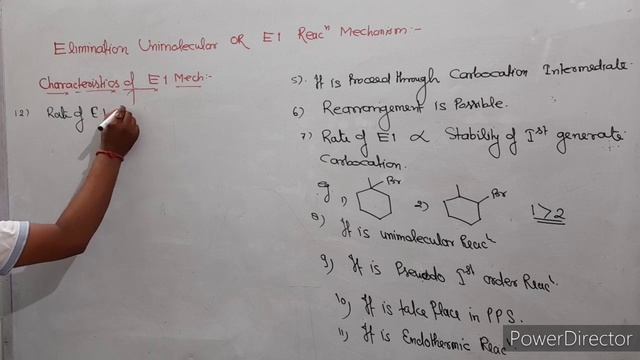 Elimination Unimolecular OR E1 Reacⁿ Mechanism:-
Characteristics of E1 Mech:-
12) Rate of E1
5). It is Proceed through Carbocation Intermediate.
6) Rearrangement is Possible.
7) Rate of E1 ∝ Stability of Iˢᵗ generate
Carbocation.
eg 1) Br 2) Br 1>2
8) It is unimolecular Reacⁿ
9) It is Pseudo Iˢᵗ order Reacⁿ.
10) It is take Place in P.P.S.
11) It is Endothermic Reacⁿ
PowerDirector